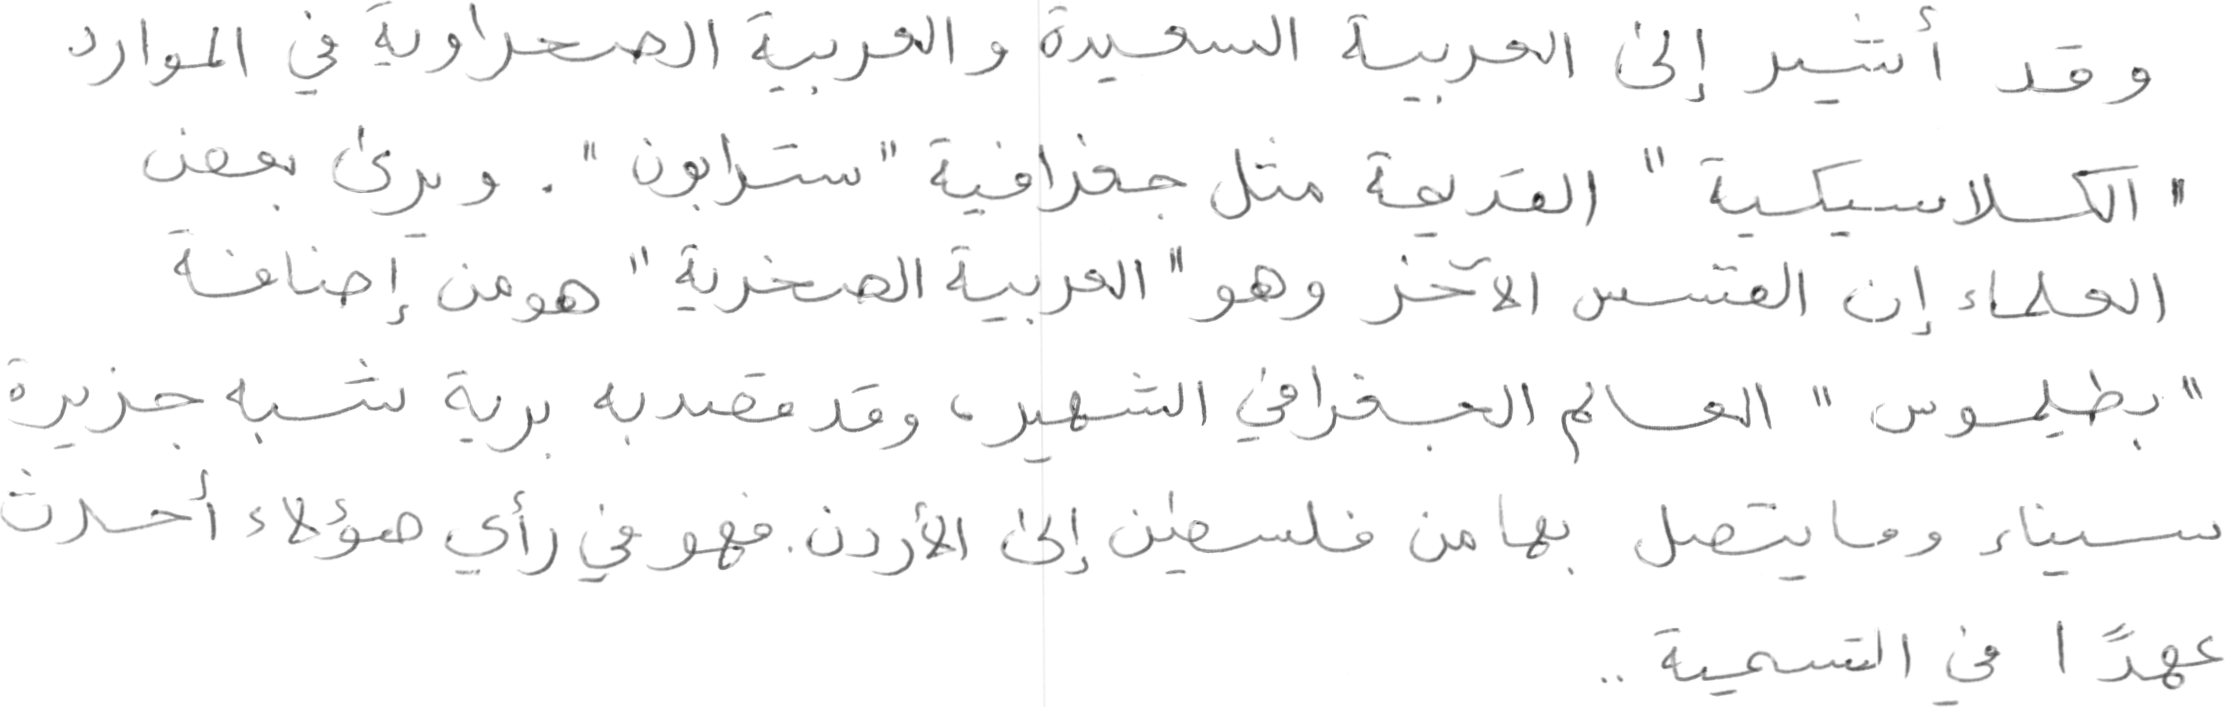 وقد أشير إلى العربية السعيدة والعربية الصحراوية في الموارد
"الكلاسيكية" القديمة مثل جغرافية "سترابون". ويرى بعض
العلماء إن القسم الآخر وهو "العربية الصخرية" هو من إضافة
"بطليموس" العالم الجغرافي الشهير، وقد قصد به برية شبه جزيرة
سيناء وما يتصل بها من فلسطين إلى الأردن. فهو في رأي هؤلاء أحدث
عهدًا في التسمية ..